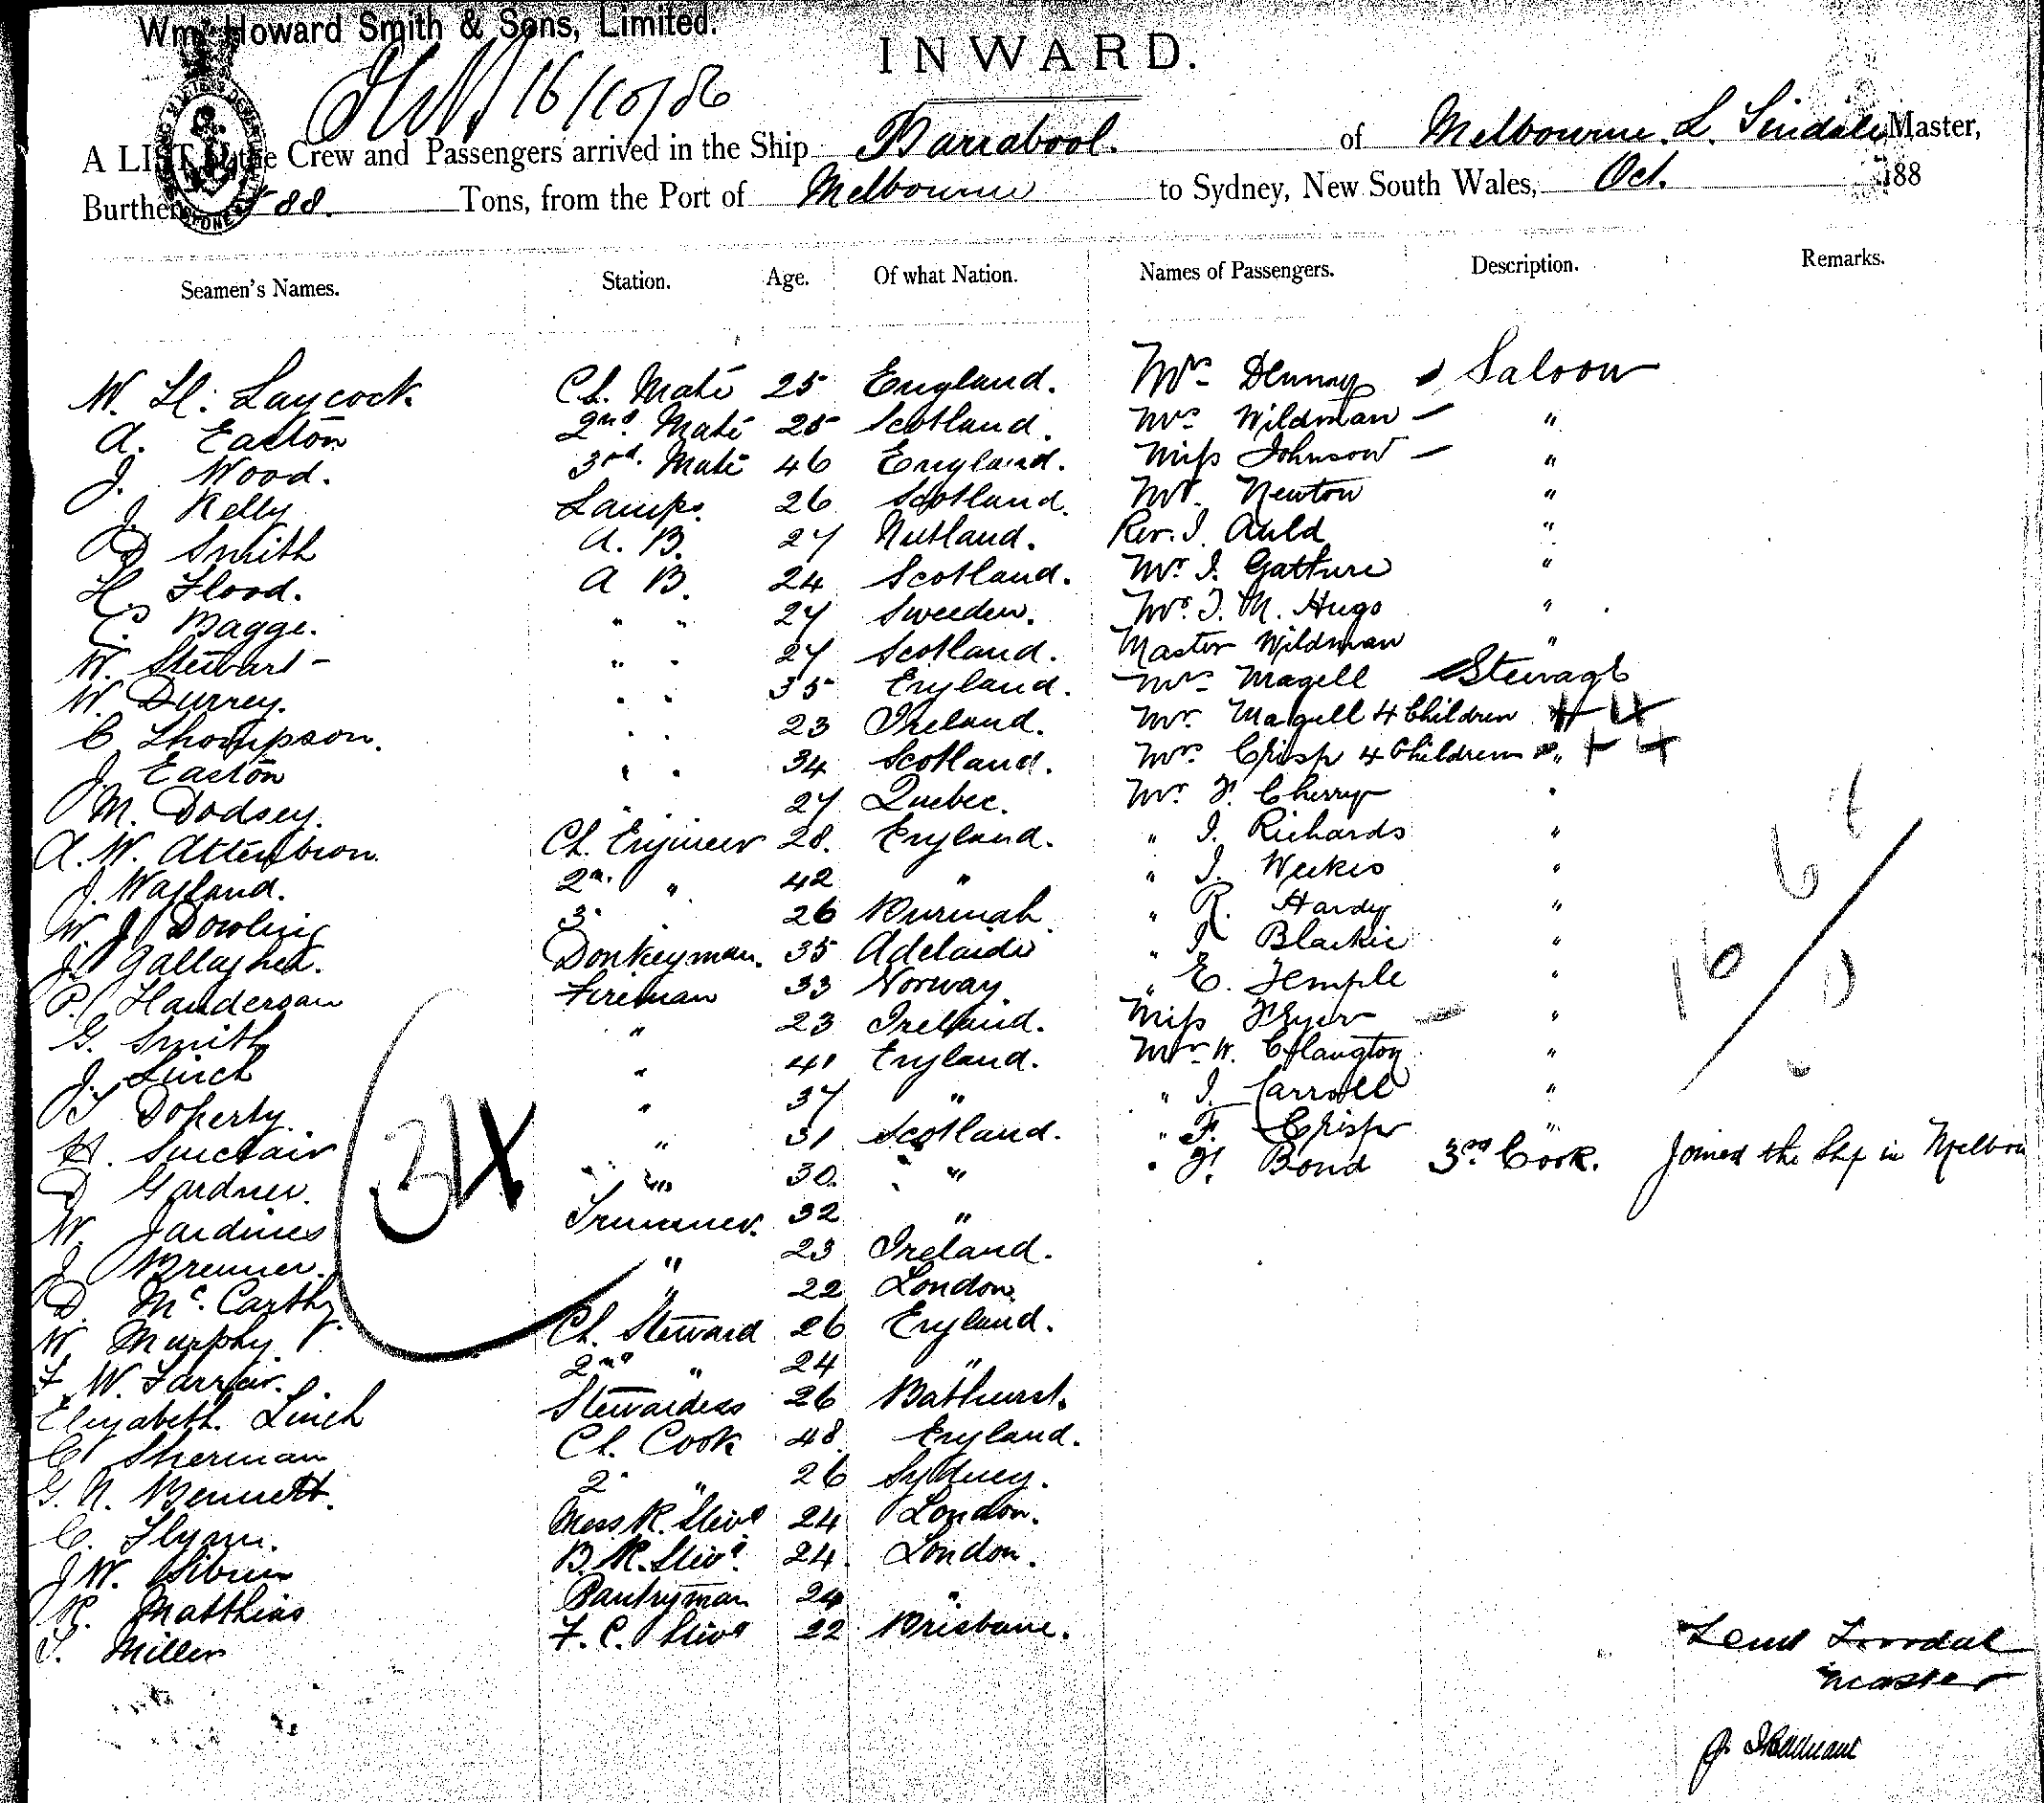 Wm. Howard Smith & Sons, Limited.
INWARD.
16/10/86
A LIST of the Crew and Passengers arrived in the Ship Barrabool. of Melbourne. L. Tindale Master,
Burthen 588. Tons, from the Port of Melbourne to Sydney, New South Wales, Oct. 188
Seamen's Names. Station. Age. Of what Nation. Names of Passengers. Description. Remarks.
W. H. Laycock Ch. Mate 25 England. Mrs Denny Saloon
A. Easton 2nd. Mate 25 Scotland. Mrs Wildman "
J. Wood. 3rd. Mate 46 England. Miss Johnson "
J. Kelly Lamps. 26 Scotland. Mr. Newton "
D Smith A. B. 27 Rev. J. Auld "
H. Flood. A B. 24 Scotland. Mr. J. "
C. Bagge. " " 27 Sweeden. J. M. Hugo "
W. Stewart " " 27 Scotland. Master Wildman "
W. Durrey. " " 35 England. Mrs Magell Steerage
C Thompson. " " 23 Ireland. Mr. Magell 4 Children " +4
J. Easton " " 34 Scotland. Mrs Crisp 4 Children " +4
M. Dodsey. " 27 Quebec. Mr. F. Cherry "
A. W. Attenbron Ch. Engineer 28. England. " J. Richards "
J. Wayland. 2n. " 42 " " J. Weekes "
W J Dowling 3 26 Burmah " R. Hardy "
J. Gallagher. Donkeyman. 35 Adelaide " J. Blackie "
P. Handersan Fireman 33 Norway. " E. Temple "
G. Smith " 23 Ireland. Miss Fryer "
J. Linch " 41 England. Mr W. Clangton "
T Doherty. " 37 " " J. Carroll "
H. Sinclair " 31 Scotland. " F. Crisp "
D Gardner. " 30. " " F. Bond 3rd Cook. Joined the Ship in Melbou
W. Jardines Trimmer. 32 "
J Brenner. " 23 Ireland.
D. Mc. Carthy " 22 London.
W. Murphy. Ch. Steward 26 England.
F. W. Farrar. 2nd " 24 "
Elizabeth. Linch Stewardess 26 Bathurst.
C Sherman Ch. Cook 48. England.
G. N. Bennett. 2 " 26 Sydney.
C. Flynn. Mess R. Stwd 24 London.
J W. B. R. Stwd. 24. London.
R. Matthias Pantryman 24 "
T. Miller F. C. Stwd 22 Brisbane.
34
Master